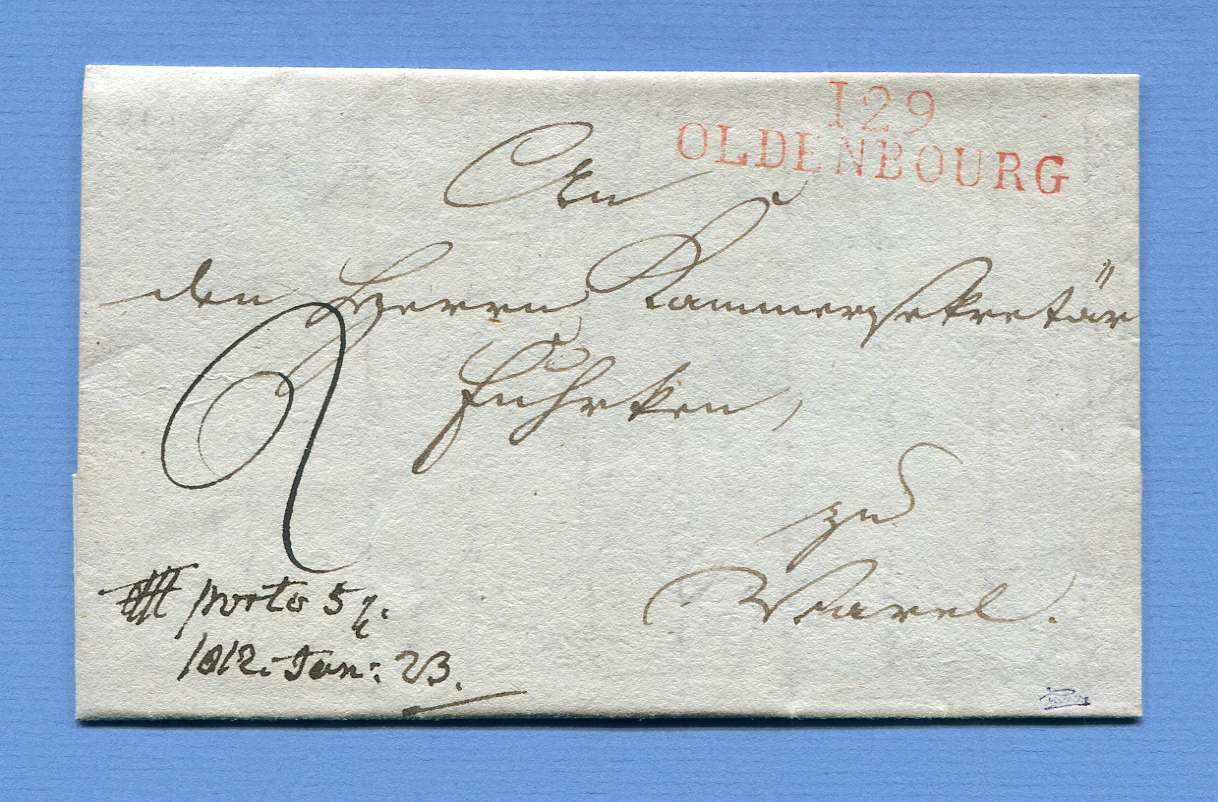 129
OLDENBOURG
An
den Herrn Kammersekretär
Fuhrken,
zu
Varel.
2
porto 5
1812. Jan: 23.